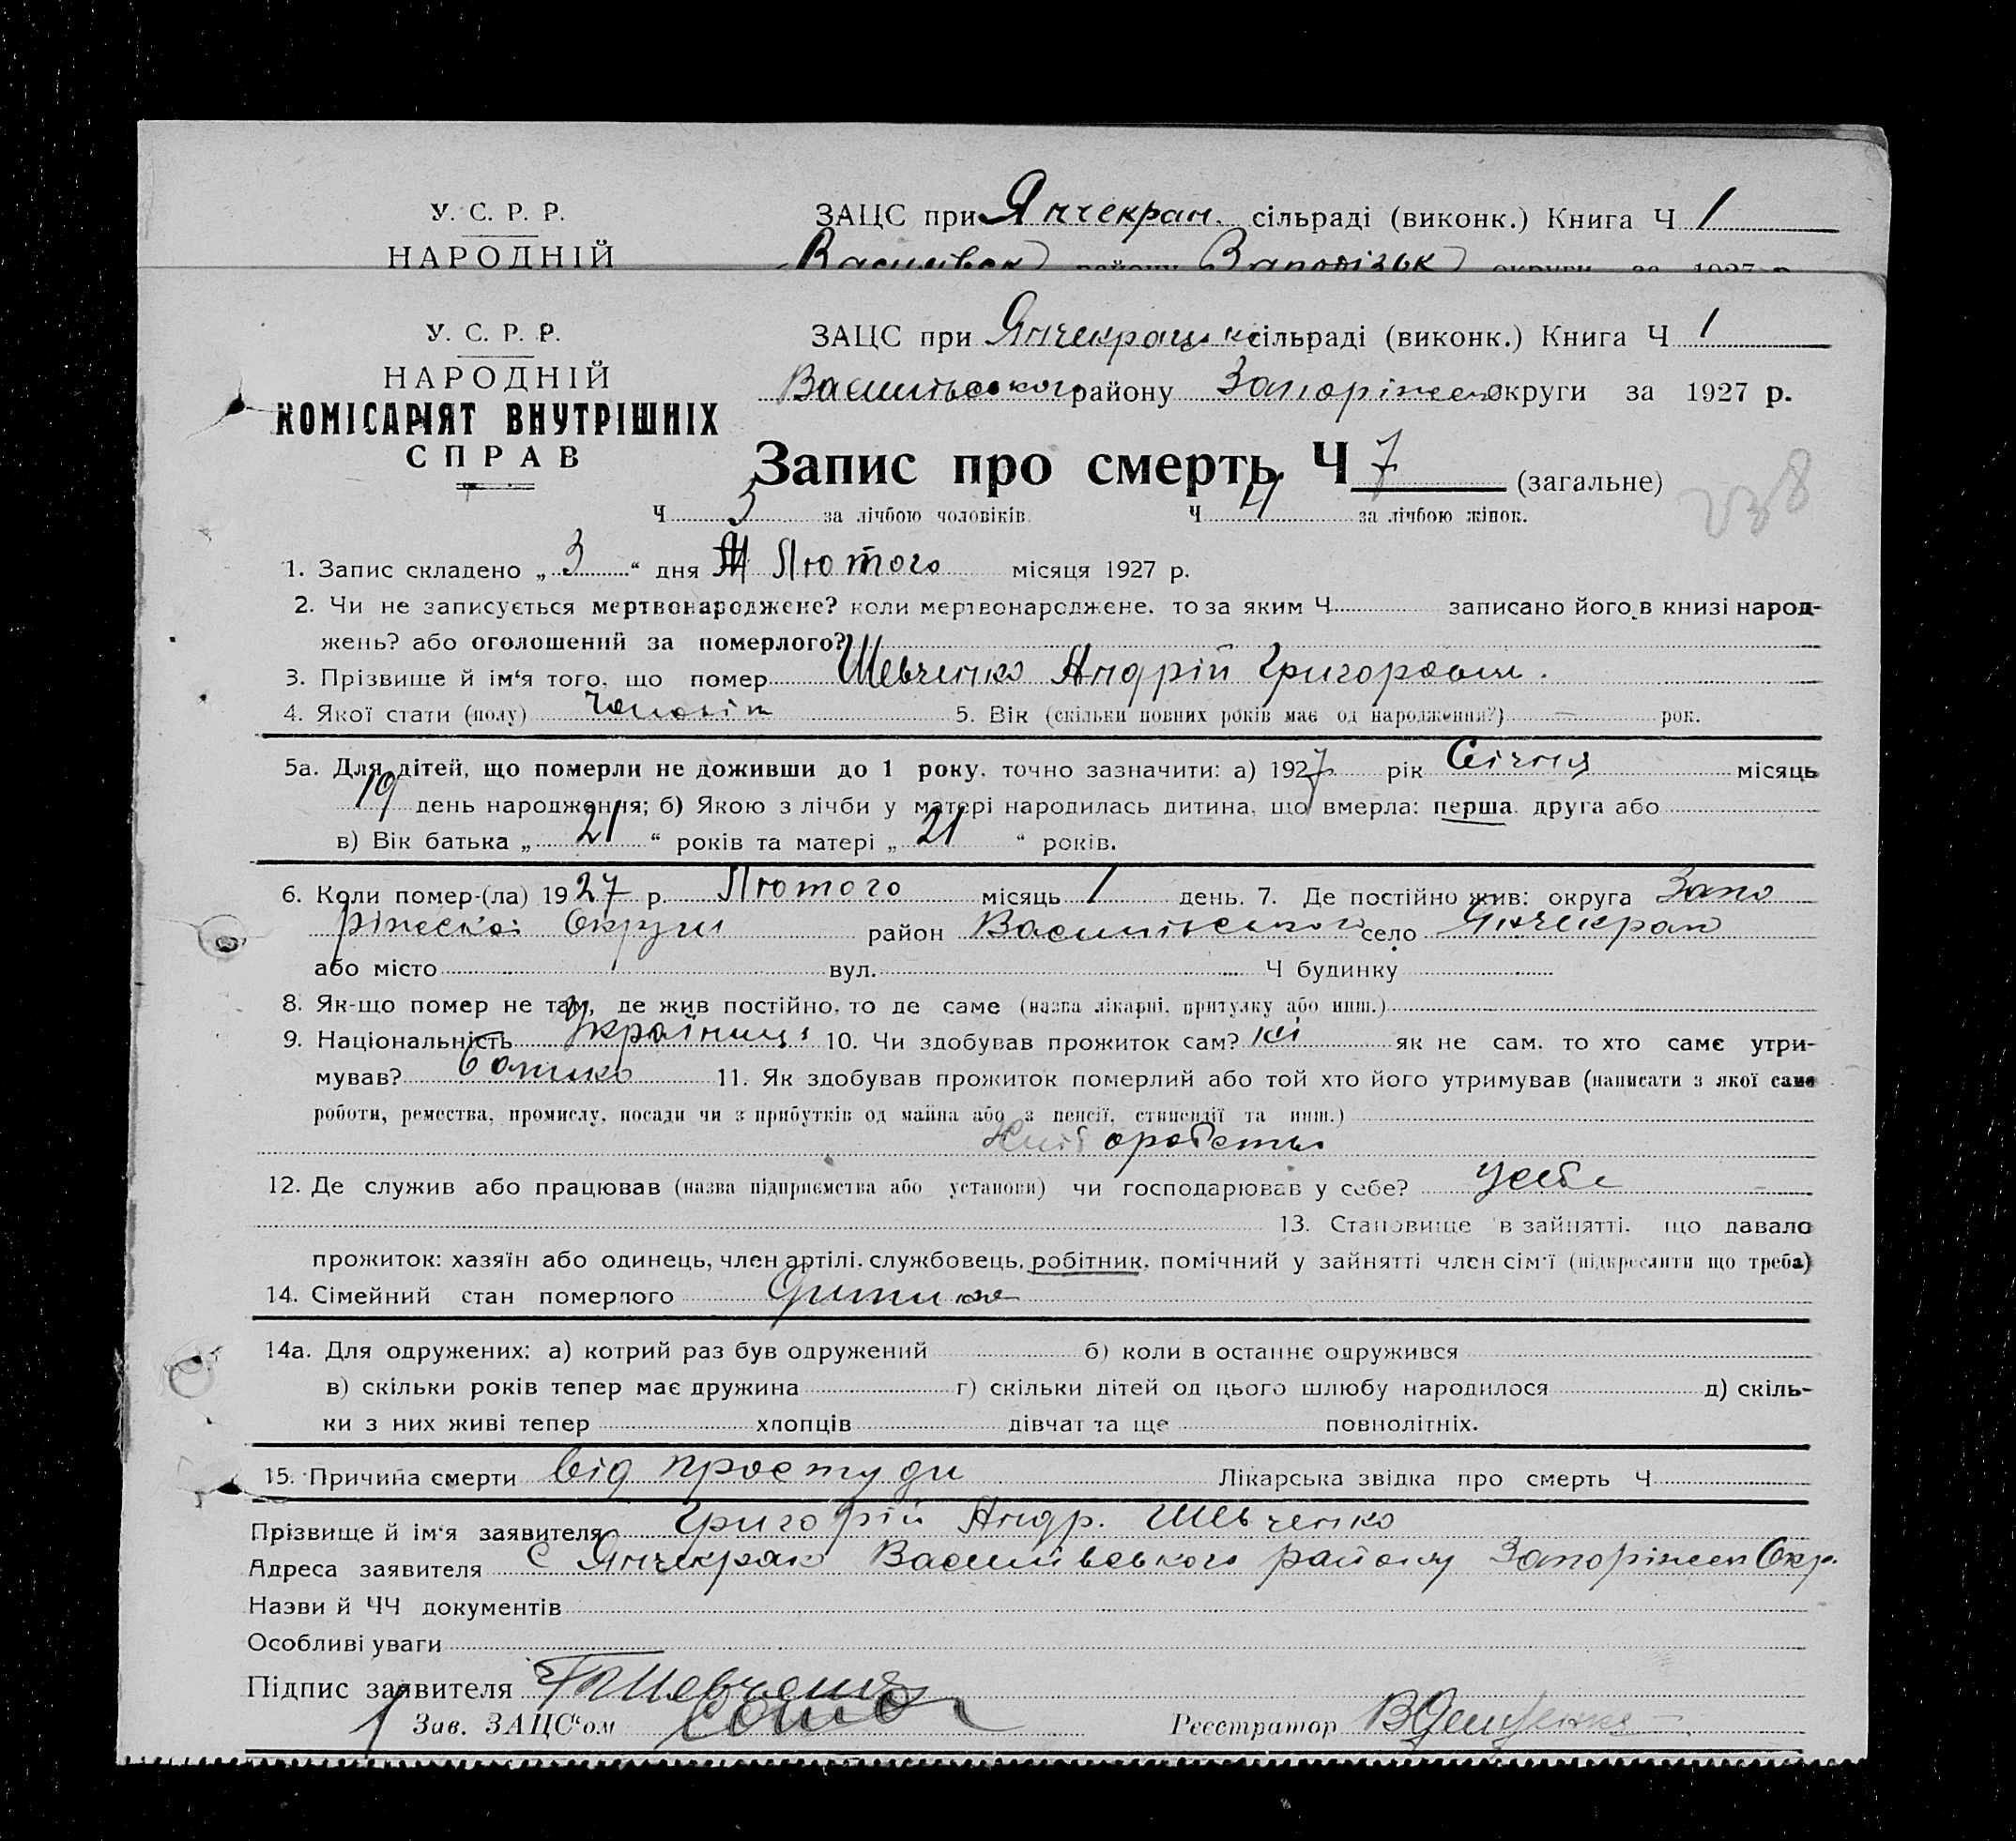 У. С. Р. Р.
НАРОДНІЙ
ЗАЦС при Янчекрак. сільраді (виконк.) Книга Ч 1
Василівськ району Запоріжськ округи за 1927 р.
У. С. Р. Р.
НАРОДНІЙ
КОМІСАРІЯТ ВНУТРІШНІХ
СПРАВ
ЗАЦС при Янчекрацьк сільраді (виконк.) Книга Ч 1
Василівського району Запоріжськ округи за 1927 р.
Запис про смерть Ч 7 (загальне)
238
Ч 3 за лічбою чоловіків. Ч 4 за лічбою жінок.
1. Запис складено „ 3 “ дня Лютого місяця 1927 р.
2. Чи не записується мертвонароджене? коли мертвонароджене, то за яким Ч записано його в книзі народ-
жень? або оголошений за померлого?
3. Прізвище й ім‘я того, що помер Шевченко Андрій Григорович.
4. Якої стати (полу) Чоловік 5. Вік (скільки повних років має од народження?) — рок.
5а. Для дітей, що померли не доживши до 1 року, точно зазначити: а) 1927 рік Січня місяць
19 день народження; б) Якою з лічби у матері народилась дитина, що вмерла: перша, друга або
в) Вік батька „ 21 “ років та матері „ 21 “ років.
6. Коли помер-(ла) 1927 р. Лютого місяць 1 день. 7. Де постійно жив: округа Запо
ріжської Округи район Василівського село Янчекрак
або місто вул. Ч будинку
8. Як-що помер не там, де жив постійно, то де саме (назва лікарні, притулку або инш.)
9. Національність Українець 10. Чи здобував прожиток сам? ні як не сам, то хто саме утри-
мував? батько 11. Як здобував прожиток померлий або той хто його утримував (написати з якої саме
роботи, ремества, промислу, посади чи з прибутків од майна або з пенсії, стипендії та инш.)
Хліборобством
12. Де служив або працював (назва підприємства або установи) чи господарював у себе? у себе
13. Становище в зайнятті, що давало
прожиток: хазяїн або одинець, член артілі, службовець, робітник, помічний у зайнятті член сім‘ї (підкреслити що треба)
14. Сімейний стан померлого Дитина
14а. Для одружених: а) котрий раз був одружений б) коли в останнє одружився
в) скільки років тепер має дружина г) скільки дітей од цього шлюбу народилося д) скіль-
ки з них живі тепер хлопців дівчат та ще повнолітніх.
15. Причина смерти від простуди Лікарська звідка про смерть Ч
Прізвище й ім‘я заявителя Григорій Андр. Шевченко
Адреса заявителя с Янчекрак Василівського району Запоріжськ Окр.
Назви й ЧЧ документів
Особливі уваги
Підпис заявителя Г Шевченко
Зав. ЗАЦС‘ом
Реєстратор